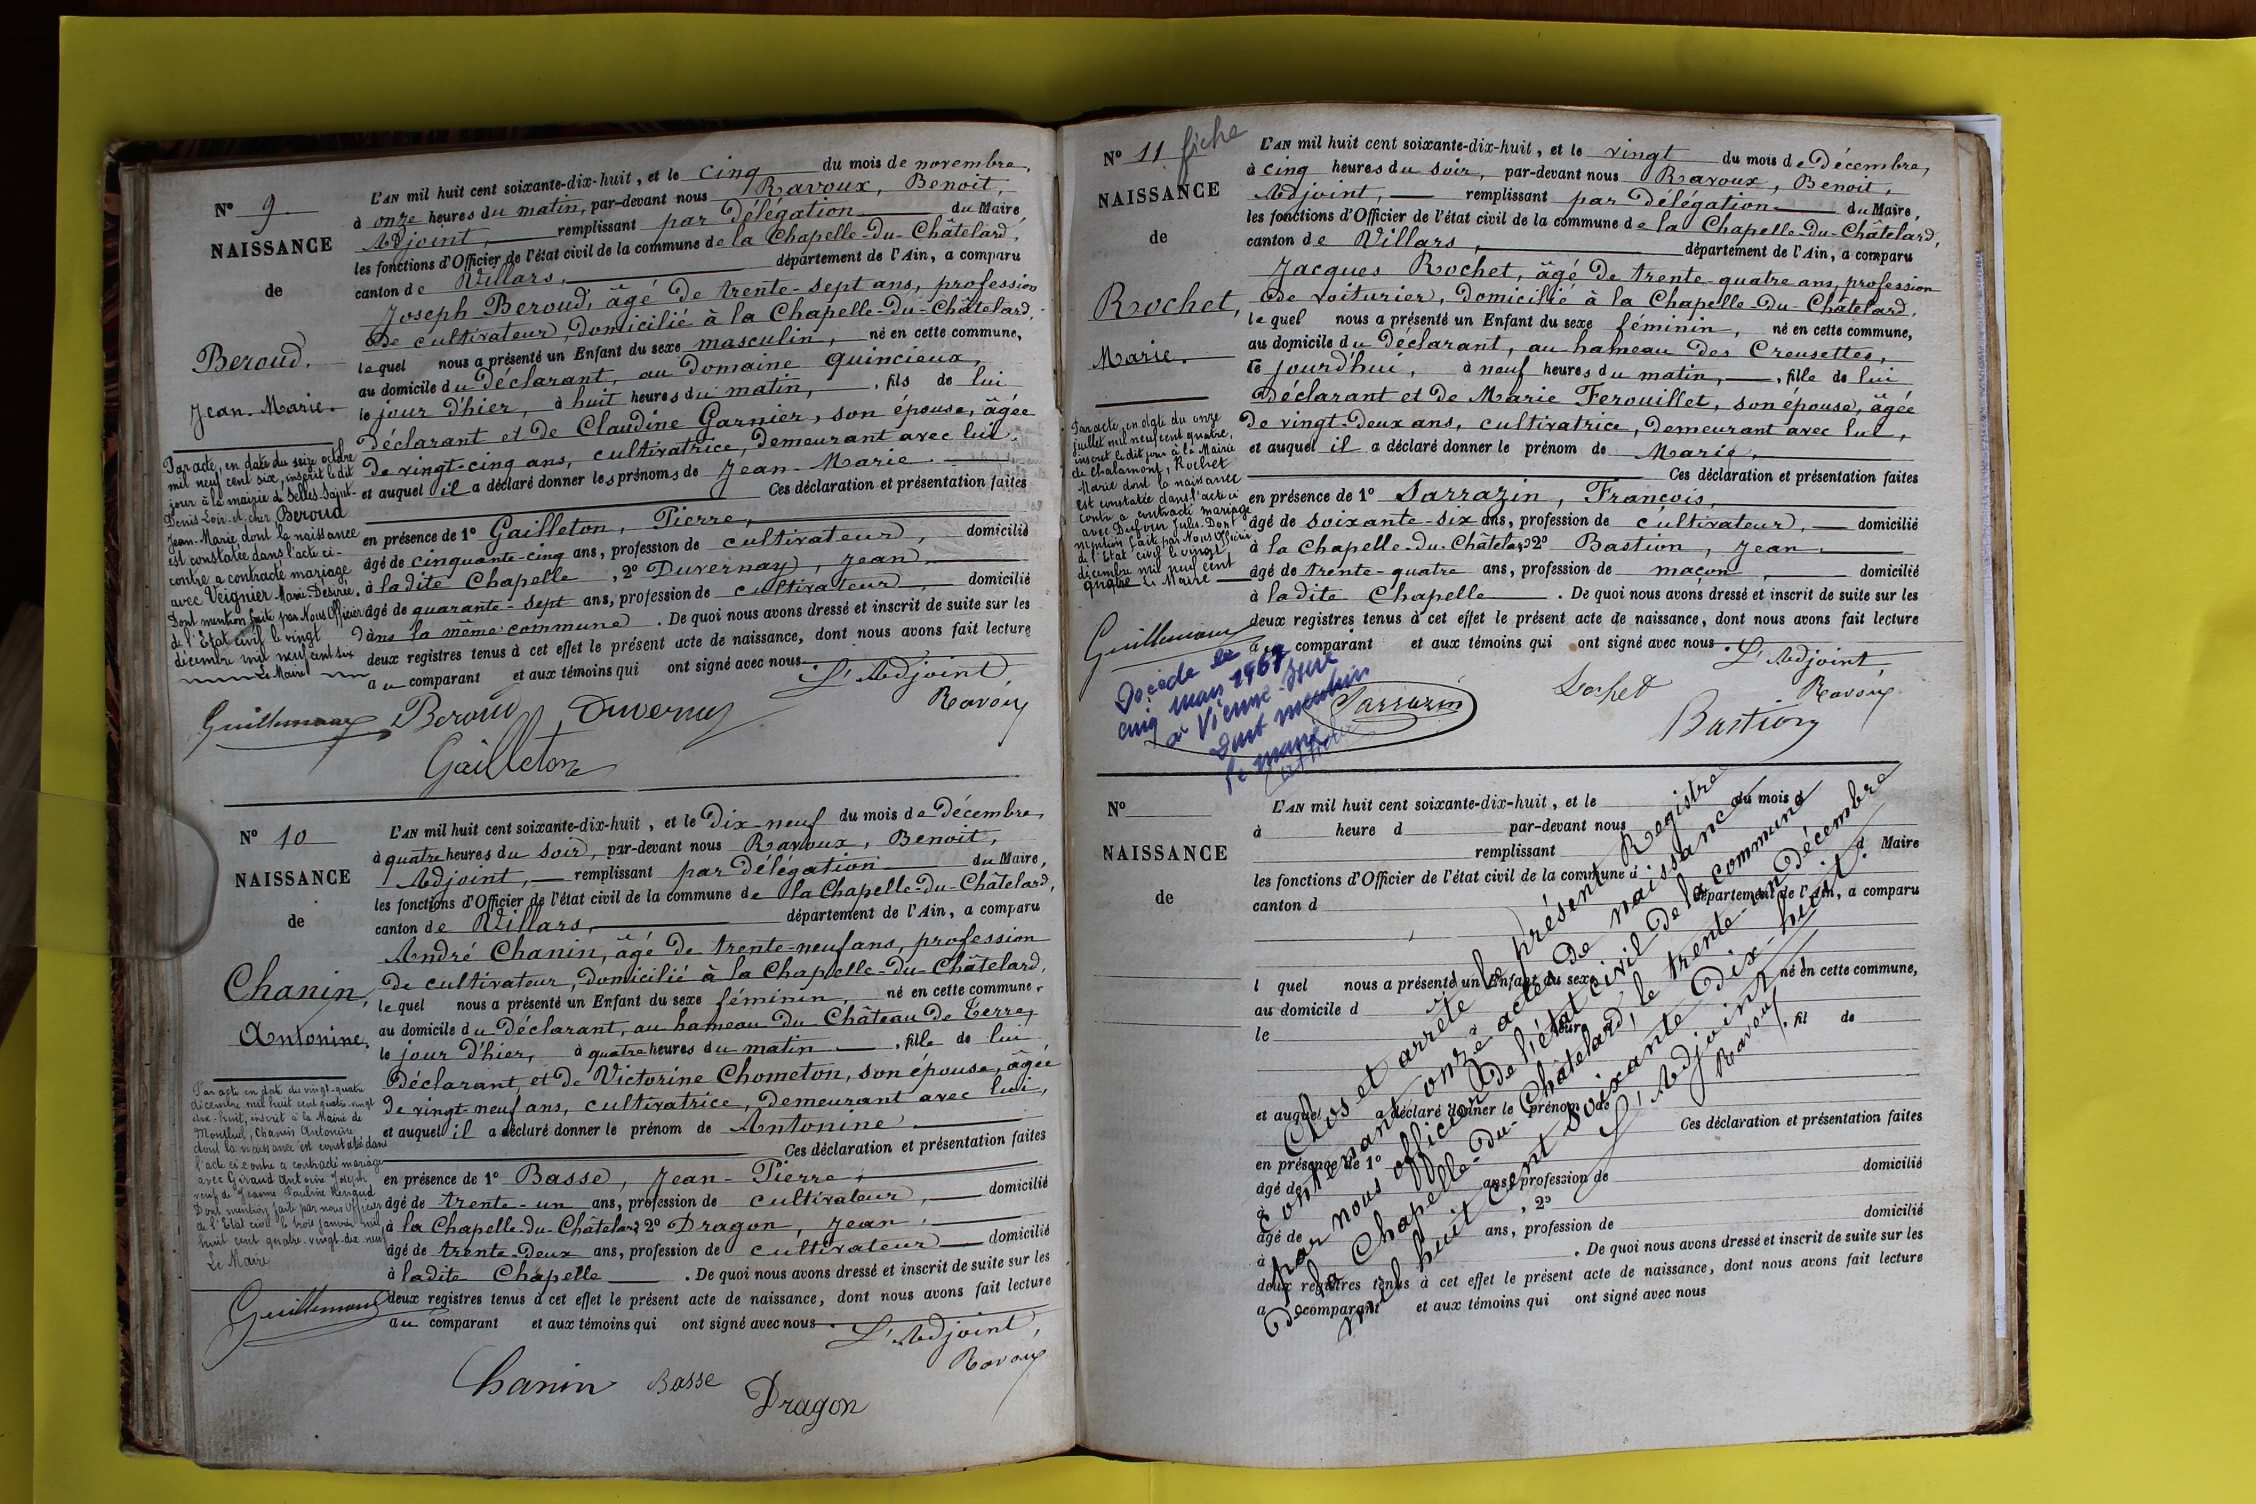 N° 9
NAISSANCE
de
Beroud.
Jean-Marie.
Par acte, en date du seize octobre
mil neuf cent six, inscrit le dit
jour à la mairie de Selles-Saint-
Denis Loir-et-cher, Beroud
Jean-Marie, dont la naissance
est constatée dans l'acte ci-
contre a contracté mariage
avec Veignier Marie-Desirée.
Dont mention faite par Nous Officier
de l'Etat civil le vingt
décembre mil neuf cent six
Le Maire
Guillemaux
L'AN mil huit cent soixante-dix-huit, et le cinq du mois de novembre,
à onze heures du matin, par-devant nous Ravoux, Benoit,
Adjoint, remplissant par Délégation du Maire,
les fonctions d'Officier de l'état civil de la commune de la Chapelle-du-Châtelard,
canton de Villars, département de l'Ain, a comparu
Joseph Beroud, âgé de trente-sept ans, profession
de cultivateur, domicilié à la Chapelle-du-Châtelard,
lequel nous a présenté un Enfant du sexe masculin, né en cette commune,
au domicile du déclarant, au domaine Quincieux,
le jour d'hier, à huit heures du matin, , fils de lui
déclarant et de Claudine Garnier, son épouse, âgée
de vingt-cinq ans, cultivatrice, demeurant avec lui.
et auquel il a déclaré donner les prénoms de Jean-Marie.
Ces déclaration et présentation faites
en présence de 1° Gailleton, Pierre,
âgé de cinquante-cinq ans, profession de cultivateur, domicilié
à ladite Chapelle, 2° Duvernay, Jean
âgé de quarante-sept ans, profession de cultivateur, domicilié
dans la même commune. De quoi nous avons dressé et inscrit de suite sur les
deux registres tenus à cet effet le présent acte de naissance, dont nous avons fait lecture
au comparant et aux témoins qui ont signé avec nous.
L'Adjoint
Beroud Duvernay Ravoux
Gailleton
N° 10
NAISSANCE
de
Chanin,
Antonine.
Par acte en date du vingt-quatre
décembre mil huit cent quatre-vingt
dix-huit, inscrit à la Mairie de
Montluel, Chanin Antonine
dont la naissance est constatée dans
l'acte ci contre a contracté mariage
avec Giraud Antoine Joseph
veuf de Jeanne Pauline
Dont mention faite par nous Officier
de l'Etat civil le trois janvier mil
huit cent quatre-vingt-dix-neuf
Le Maire
Guillemaux
L'AN mil huit cent soixante-dix-huit, et le dix-neuf du mois de Décembre,
à quatre heures du soir, par-devant nous Ravoux, Benoit,
Adjoint, remplissant par Délégation du Maire,
les fonctions d'Officier de l'état civil de la commune de la Chapelle-du-Châtelard,
canton de Villars, département de l'Ain, a comparu
André Chanin, âgé de trente-neuf ans, profession
de cultivateur, domicilié à la Chapelle-du-Châtelard,
lequel nous a présenté un Enfant du sexe féminin, né en cette commune,
au domicile du déclarant, au hameau du Château de Terre,
le jour d'hier, à quatre heures du matin , fille de lui
déclarant et de Victorine Chometon, son épouse, âgée
de vingt-neuf ans, cultivatrice, demeurant avec lui,
et auquel il a déclaré donner le prénom de Antonine
Ces déclaration et présentation faites
en présence de 1° Basse, Jean-Pierre,
âgé de trente-un ans, profession de cultivateur, domicilié
à la Chapelle-du-Châtelard 2° Dragon, Jean,
âgé de trente-deux ans, profession de cultivateur domicilié
à ladite Chapelle . De quoi nous avons dressé et inscrit de suite sur les
deux registres tenus à cet effet le présent acte de naissance, dont nous avons fait lecture
au comparant et aux témoins qui ont signé avec nous.
L'Adjoint,
Ravoux
Chanin Basse
Dragon
N° 11 fiche
NAISSANCE
de
Rochet,
Marie.
Par acte, en date du onze
juillet mil neuf cent quatre,
inscrit le dit jour à la Mairie
de Chalamont, Rochet
Marie dont la naissance
est constatée dans l'acte ci
contre a contracté mariage
avec Dufour Jules. Dont
mention faite par Nous Officier
de l'Etat civil le vingt
décembre mil neuf cent
quatre Le Maire
Guillemaux
Décédée le
cinq mars 1967
à Vienne-Isère
Dont mention
le maire
L'AN mil huit cent soixante-dix-huit, et le vingt du mois de Décembre,
à cinq heures du soir, par-devant nous Ravoux, Benoit,
Adjoint, remplissant par Délégation du Maire,
les fonctions d'Officier de l'état civil de la commune de la Chapelle-du-Châtelard,
canton de Villars, département de l'Ain, a comparu
Jacques Rochet, âgé de trente-quatre ans, profession
de voiturier, domicilié à la Chapelle-du-Châtelard,
lequel nous a présenté un Enfant du sexe féminin, né en cette commune,
au domicile du déclarant, au hameau des Creusettes,
ce jourd'hui, à neuf heures du matin, , fille de lui
déclarant et de Marie Ferouillet, son épouse, âgée
de vingt-deux ans, cultivatrice, demeurant avec lui,
et auquel il a déclaré donner le prénom de Marie,
Ces déclaration et présentation faites
en présence de 1° Sarrazin, François,
âgé de soixante-six ans, profession de cultivateur, domicilié
à la Chapelle-du-Châtelard 2° Bastion, Jean.
âgé de trente-quatre ans, profession de maçon, domicilié
à ladite Chapelle . De quoi nous avons dressé et inscrit de suite sur les
deux registres tenus à cet effet le présent acte de naissance, dont nous avons fait lecture
au comparant et aux témoins qui ont signé avec nous.
L'Adjoint
Sarrazin Rochet Ravoux
Bastion
N°
NAISSANCE
de
L'AN mil huit cent soixante-dix-huit, et le du mois d
à heure d par-devant nous
remplissant d Maire
les fonctions d'Officier de l'état civil de la commune d
canton d département de l'Ain, a comparu
l quel nous a présenté un Enfant du sexe né en cette commune,
au domicile d
le à heure , fil de
et auquel a déclaré donner le prénom de
Ces déclaration et présentation faites
en présence de 1°
âgé de ans, profession de domicilié
à , 2°
âgé de ans, profession de domicilié
à . De quoi nous avons dressé et inscrit de suite sur les
deux registres tenus à cet effet le présent acte de naissance, dont nous avons fait lecture
a comparant et aux témoins qui ont signé avec nous
Clos et arrêté le présent Registre
contenant onze actes de naissance
par nous officier de l'état civil de la commune
de la Chapelle-du-Châtelard, le trente-un Décembre
mil huit cent soixante-dix-huit.
L'Adjoint
Ravoux